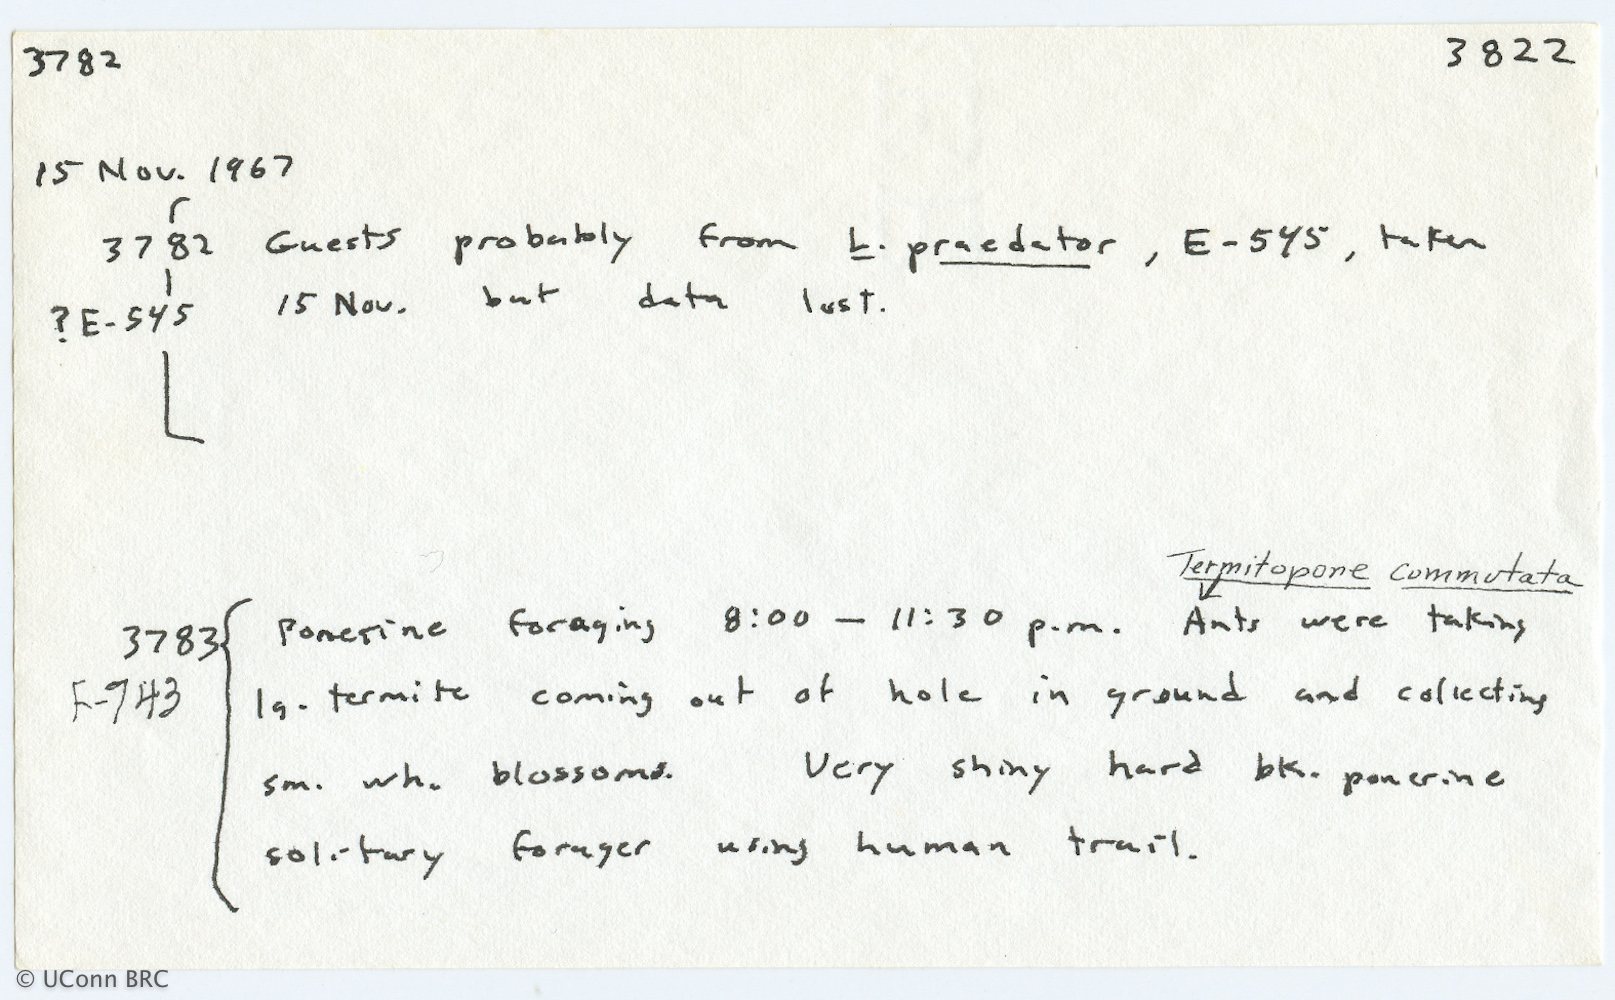 3782 3822
15 Nov. 1967
3782 Guests probably from L. praedator, E-545, taken
?E-545 15 Nov. but data lost.
Termitopone commutata
3783 Ponerine foraging 8:00 — 11:30 p.m. Ants were taking
E-743 lg. termite coming out of hole in ground and collecting
sm. wh. blossoms. Very shiny hard bk. ponerine
solitary forager using human trail.
© UConn BRC